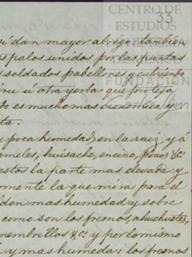 CENTRO DE
ESTUDIOS
33
FUNDACIÓN
ri dan mayor abrigo tambien
palos unidos por las puntas
soldados pabellones cubierto
ne u otra yerba que proteja
to es muchomas economico y
ta.
poca humedad en la raiz, y a
meles, huisache, encino, pinos &c
estos la parte mas elevada y
mente la que mira para el
den mas humedad y sobre
como son los fresnos, ahuehuetes,
membrillos &c: y por lo mismo
y mas humeda: los fresnos